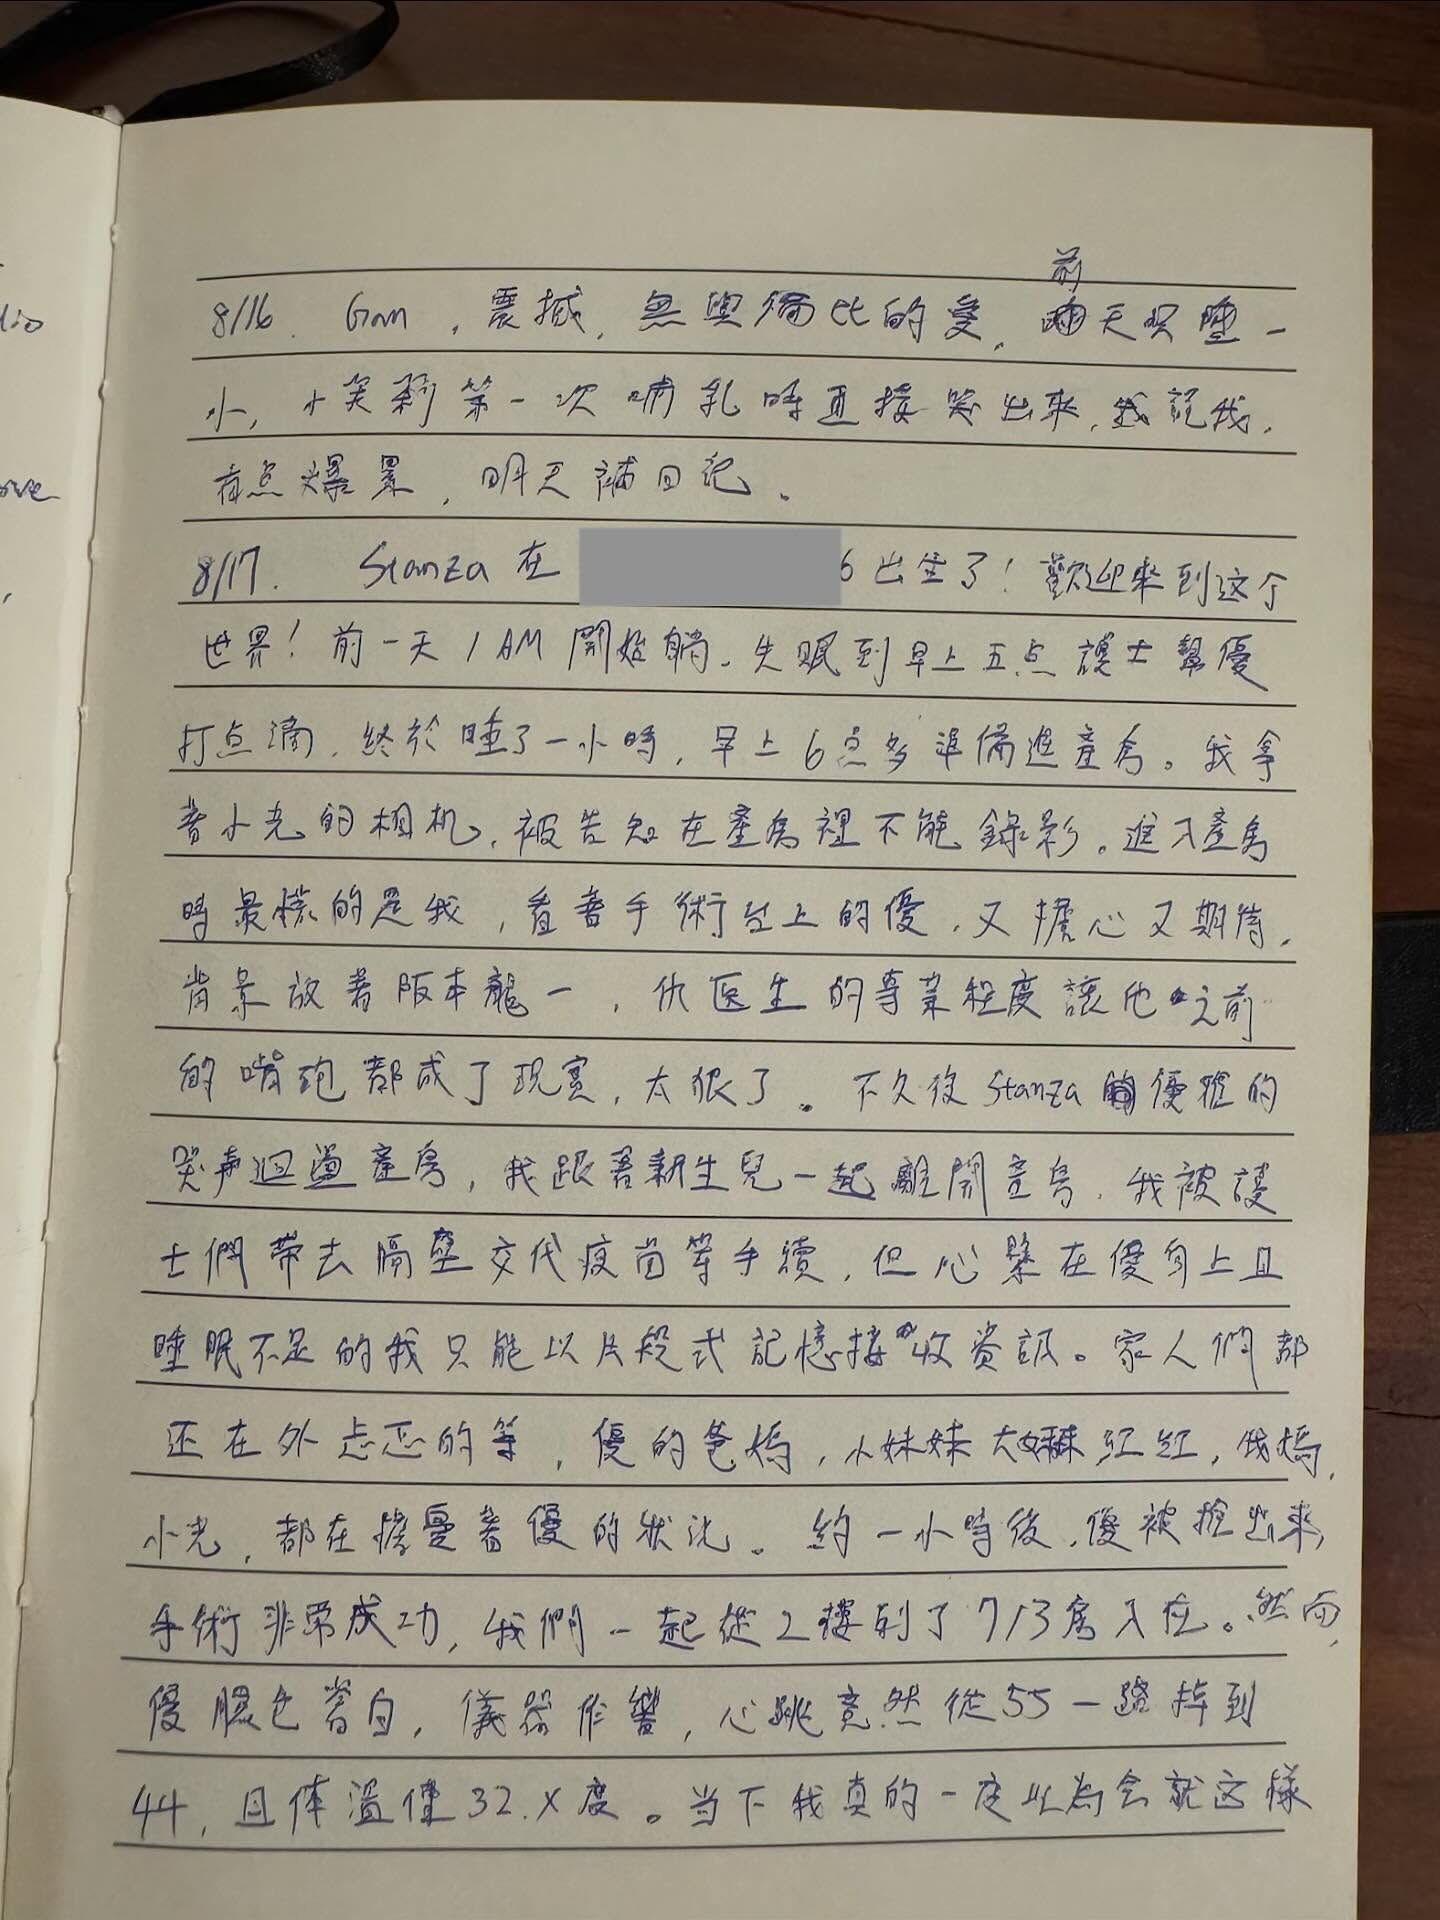 dio
ove
前
8/16. Gm, 震撼, 無與倫比的愛, 天只睡一
小, 小茉莉第一次哺乳時直接哭出來, 我說我,
有点爆累, 明天補日記。
8/17. Stanza 在 6 出生了! 歡迎來到这个
世界! 前一天 1 AM 開始躺, 失眠到早上五点護士幫優
打点滴, 終於睡了一小時, 早上6点多準備進產房。我拿
著小光的相机, 被告知在產房裡不能錄影。進入產房
時最慌的是我, 看著手術台上的優, 又擔心又期待,
背景放著阪本龍一, 仇医生的專業程度讓他之前
的嘴砲都成了現實, 太狠了。不久後 Stanza 優雅的
哭声迴盪產房, 我跟著新生兒一起離開產房, 我被護
士們帶去隔壁交代疫苗等手續, 但心懸在優身上且
睡眠不足的我只能以片段式記憶接收資訊。家人們都
还在外忐忑的等, 優的爸媽, 小妹妹大姊紅紅, 我媽,
小光, 都在擔憂著優的狀況。約一小時後, 優被推出來,
手術非常成功, 我們一起從2樓到了713房入住。然而,
優臉色蒼白, 儀器作響, 心跳竟然從55一路掉到
44, 且体溫僅32.X度。当下我真的一度以為会就这樣